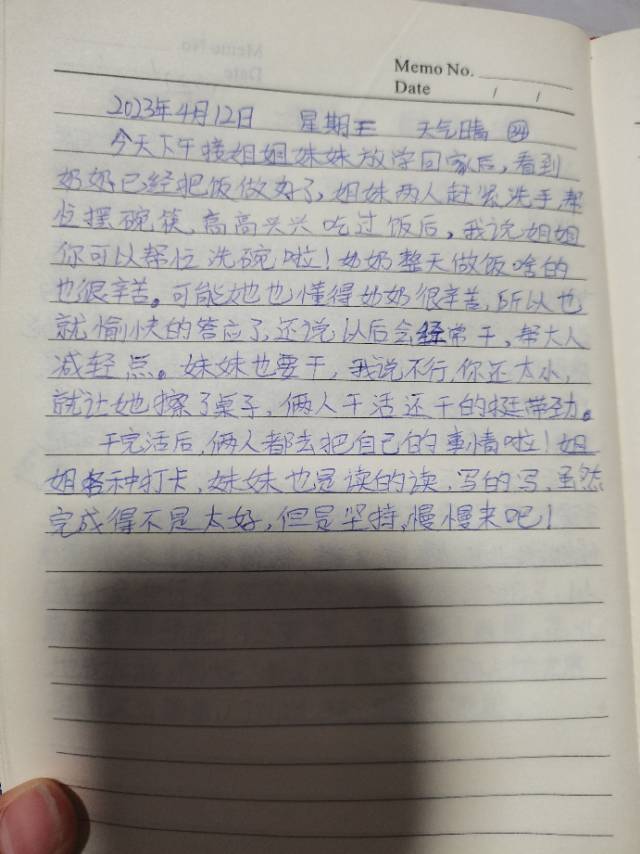 Memo No.
Date / /
2023年4月12日 星期三 天气晴 24
今天下午接姐姐妹妹放学回家后,看到
奶奶已经把饭做好了,姐妹两人赶紧洗手,帮
忙摆碗筷,高高兴兴吃过饭后,我说姐姐
你可以帮忙洗碗啦!奶奶整天做饭啥的
也很辛苦。可能她也懂得奶奶很辛苦,所以也
就愉快的答应了,还说以后会经常干,帮大人
减轻点。妹妹也要干,我说不行,你还太小,
就让她擦了桌子,俩人干活还干的挺带劲。
干完活后,俩人都去把自己的事情啦!姐
姐各种打卡,妹妹也是读的读,写的写,虽然
完成得不是太好,但是坚持,慢慢来吧!